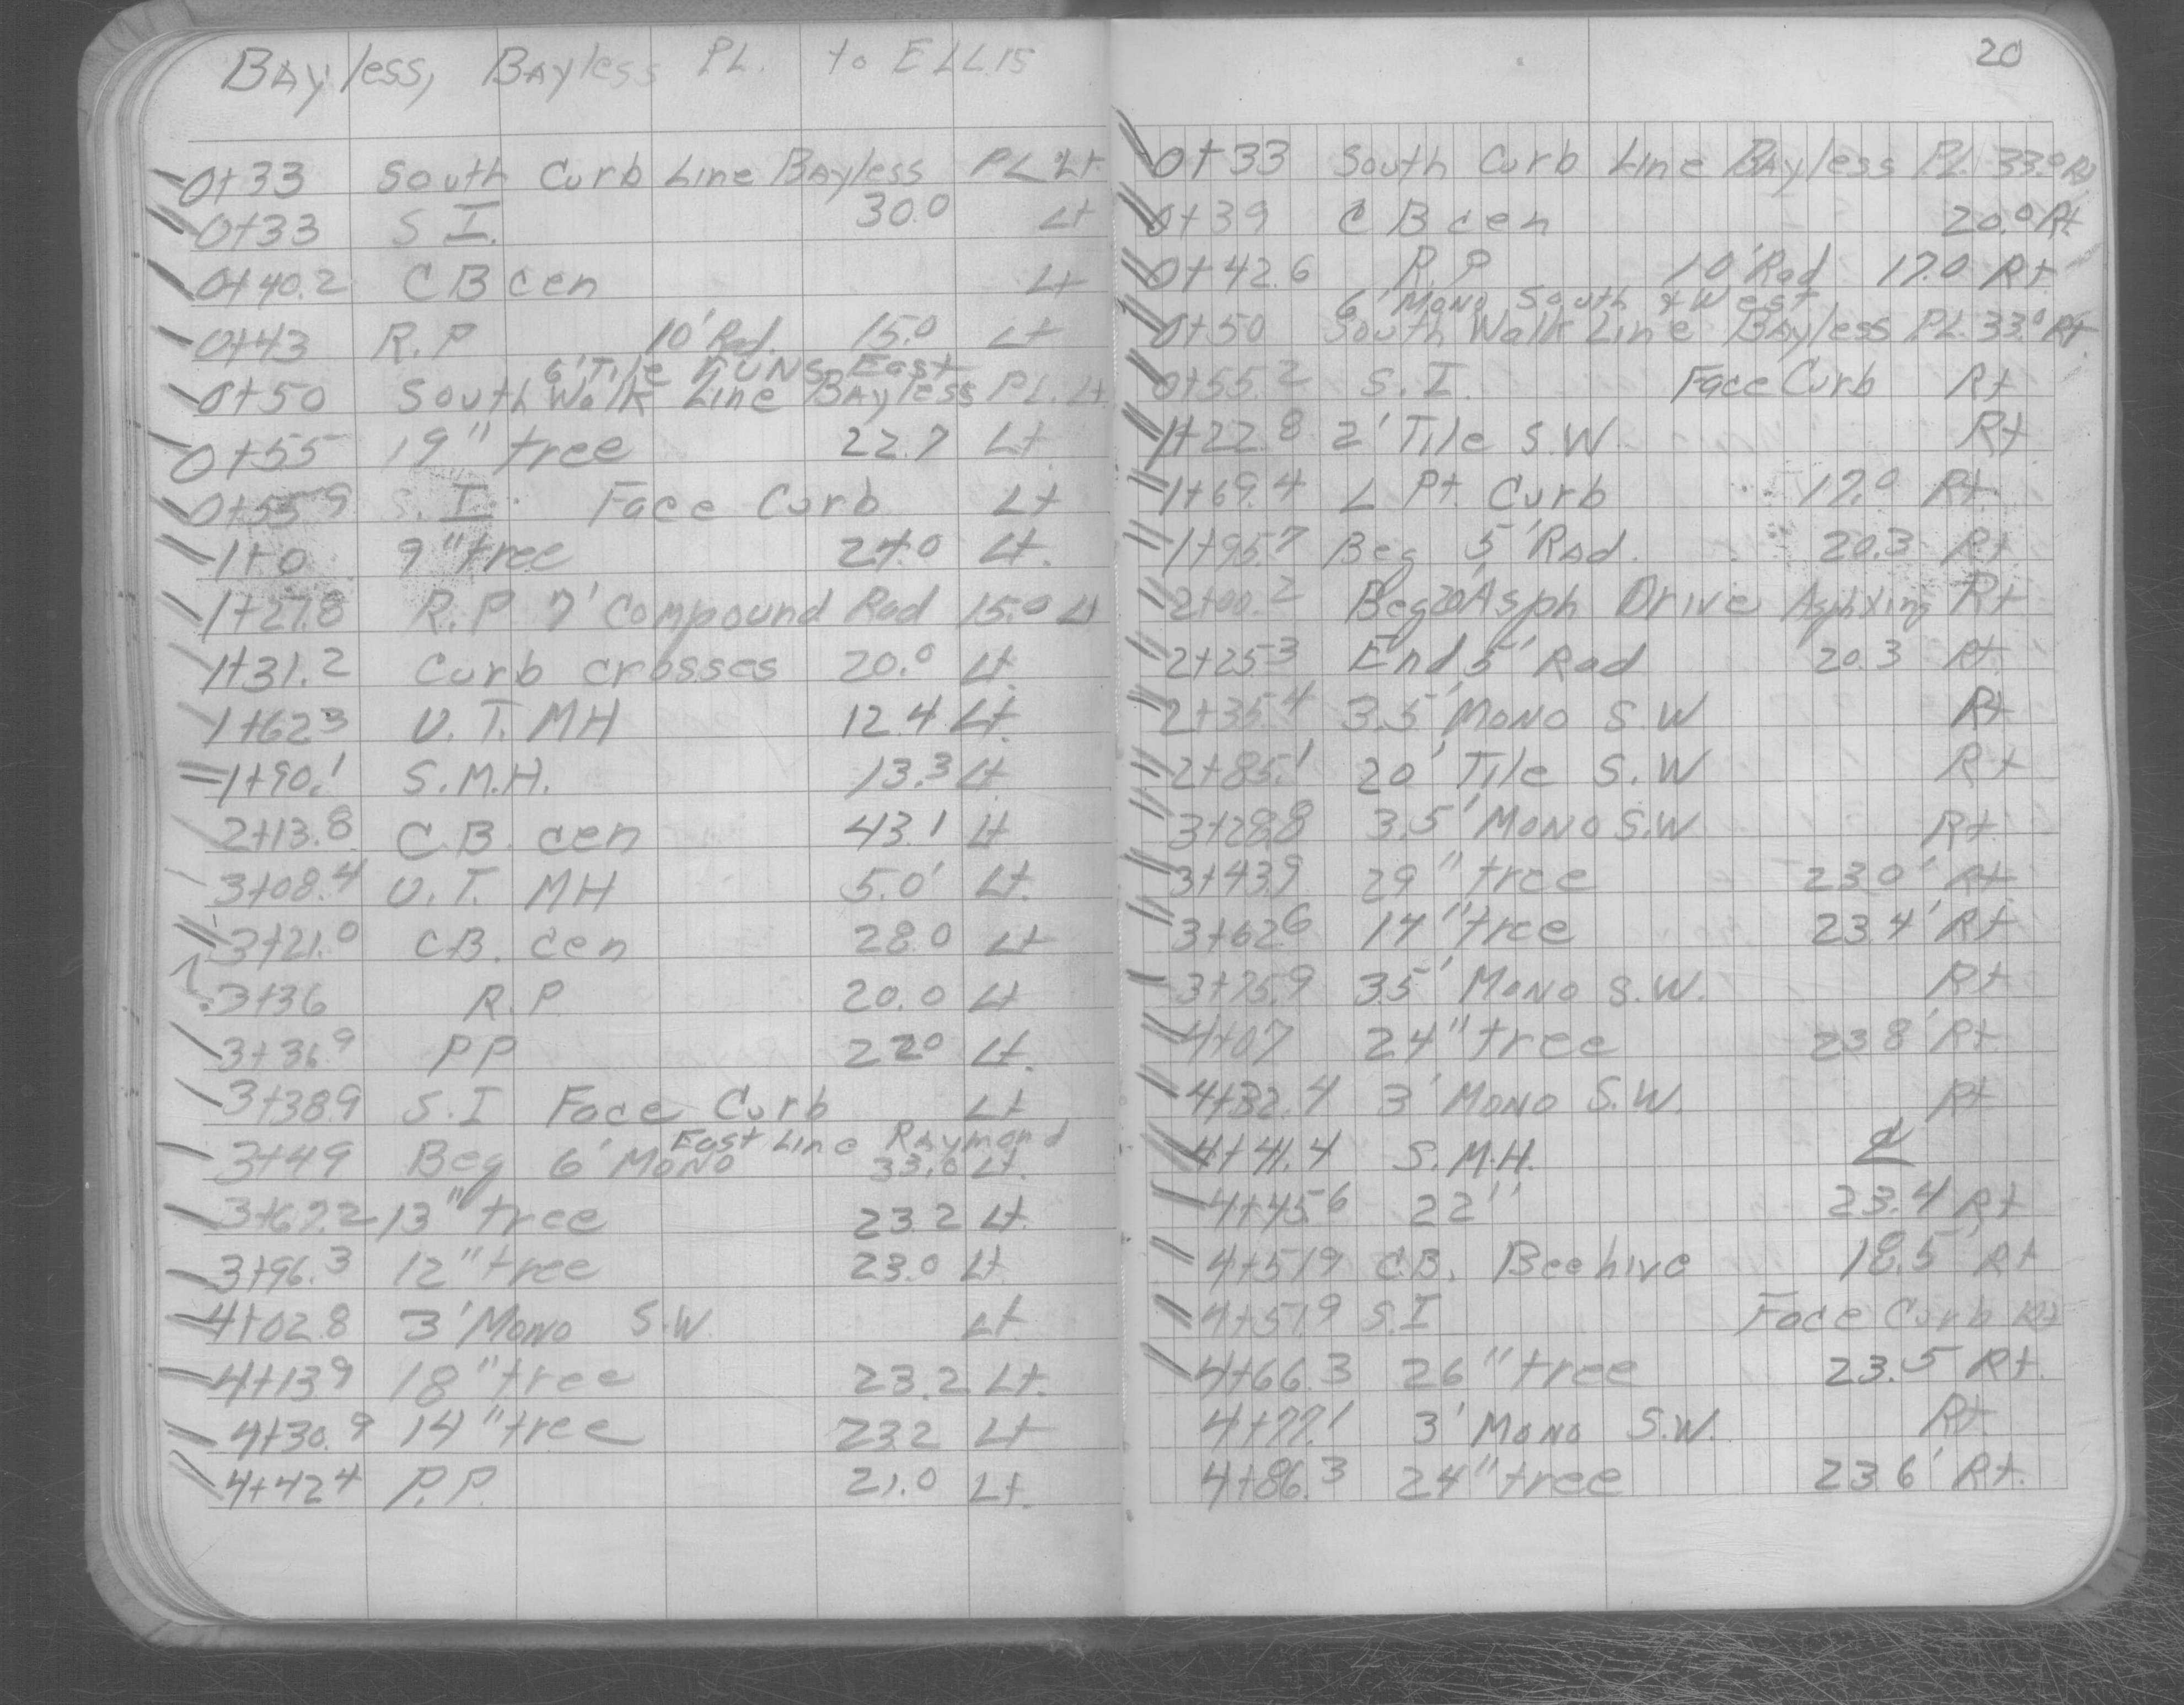 Bayless, Bayless PL. to ELLIS
0+33 South Curb Line Bayless PL Lt.
0+33 S I. 30.0 Lt
0+40.2 C B cen Lt
0+43 R.P 10' Rad. 15.0 Lt
6' Tile runs East
0+50 South Walk Line Bayless PL. Lt
0+55 19" tree 22.7 Lt.
0+55.9 S.I. Face Curb Lt
1+0 9" tree 24.0 Lt.
1+27.8 R.P 7' Compound Rad 15.0 Lt
1+31.2 Curb crosses 20.0 Lt.
1+62.3 U.T. MH 12.4 Lt.
1+90.1 S.M.H. 13.3 Lt
2+13.8 C.B. cen 43.1 Lt
3+08.4 U.T. MH 5.0' Lt.
3+21.0 CB. cen 28.0 Lt
3+36 R.P 20.0 Lt
3+36.9 PP 22.0 Lt.
3+38.9 S.I Face Curb Lt
East Line Raymond
3+49 Beg 6' Mono 33.0 Lt.
3+67.2 13" tree 23.2 Lt.
3+96.3 12" tree 23.0 Lt
4+02.8 3' Mono S.W. Lt
4+13.9 18" tree 23.2 Lt.
4+30.9 14" tree 23.2 Lt
4+42.4 P.P. 21.0 Lt.
20
0+33 South Curb Line Bayless PL. 33.0 Rt
0+39 C B cen 20.0 Rt
0+42.6 R.P 10' Rad 17.0 Rt
6' Mono South & West
0+50 South Walk Line Bayless PL. 33.0 Rt
0+55.2 S.I. Face Curb Rt
1+22.8 2' Tile S.W. Rt
1+69.4 L Pt. Curb 17.0 Rt.
1+95.7 Beg 5' Rad. 20.3 Rt
2+00.2 Beg 20' Asph Drive Asph Xing Rt
2+25.3 End 5' Rad 20.3 Rt.
2+35.4 3.5' Mono S.W Rt
2+85.1 20' Tile S.W Rt
3+28.8 3.5' Mono S.W Rt.
3+43.9 29" tree 23.0' Rt
3+62.6 14" tree 23.4' Rt
3+75.9 35' Mono S.W. Rt
4+07 24" tree 23.8' Rt
4+32.4 3' Mono S.W. Rt
4+41.4 S.M.H. ℄
4+45.6 22" 23.4 Rt
4+51.9 C.B. Beehive 18.5' Rt
4+51.9 S.I Face Curb Rt
4+66.3 26" tree 23.5 Rt.
4+77.1 3' Mono S.W. Rt.
4+86.3 24" tree 23.6' Rt.